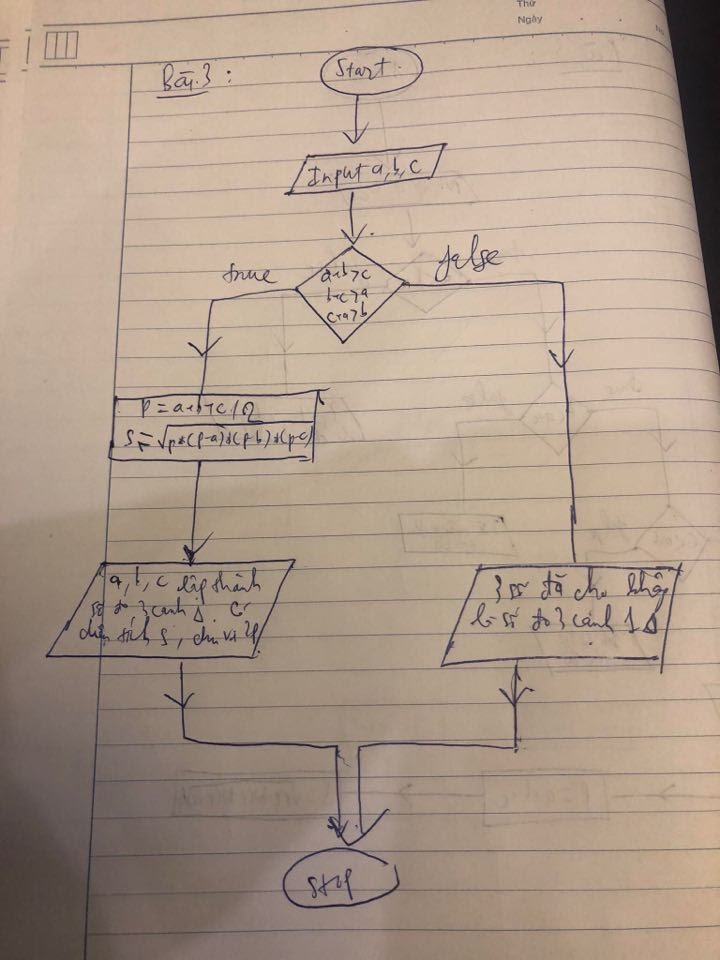 Thứ
Ngày
No
Bài 3:
Start
Input a, b, c
a+b>c
b+c>a
c+a>b
true
false
P = a+b+c/2
S = √p*(p-a)*(p-b)*(p-c)
a, b, c lập thành
số đo 3 cạnh Δ. Có
diện tích S, chu vi 2P
3 số đã cho không
là số đo 3 cạnh 1 Δ
Stop